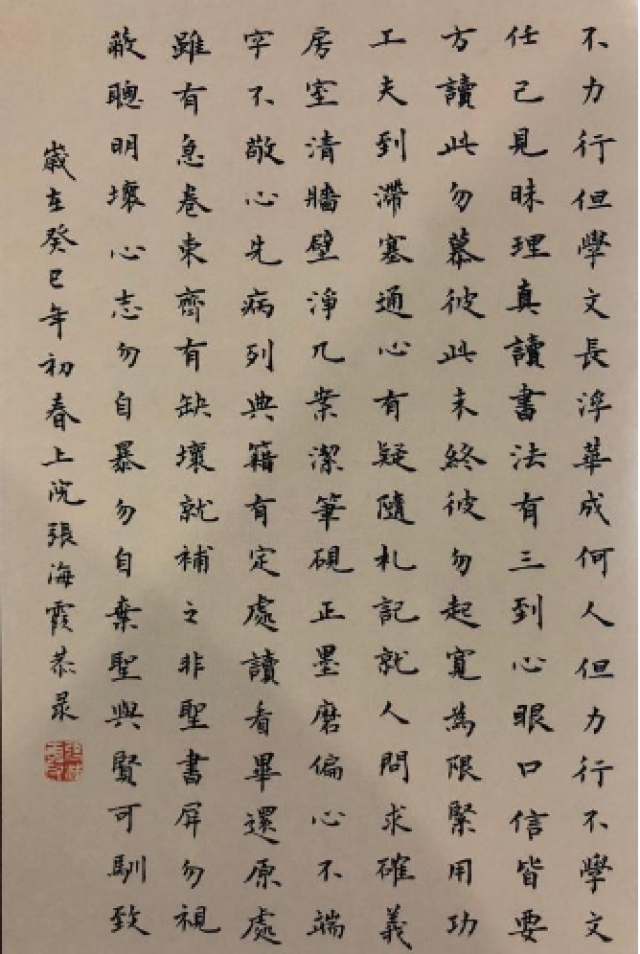 不力行但學文長浮華成何人但力行不學文
任己見昧理真讀書法有三到心眼口信皆要
方讀此勿慕彼此未終彼勿起寬為限緊用功
工夫到滯塞通心有疑隨札記就人問求確義
房室清牆壁淨几案潔筆硯正墨磨偏心不端
字不敬心先病列典籍有定處讀看畢還原處
雖有急卷束齊有缺壞就補之非聖書屏勿視
蔽聰明壞心志勿自暴勿自棄聖與賢可馴致
歲在癸巳年初春上浣張海霞恭录